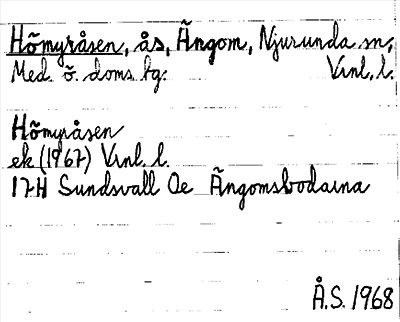 Hömyråsen, ås, Ängom, Njurunda sn,
Med. ö. doms. tg. Vnl. l.
Hömyråsen
ek (1967) Vnl. l.
17H Sundsvall Oe Ängomsbodarna
Å.S. 1968